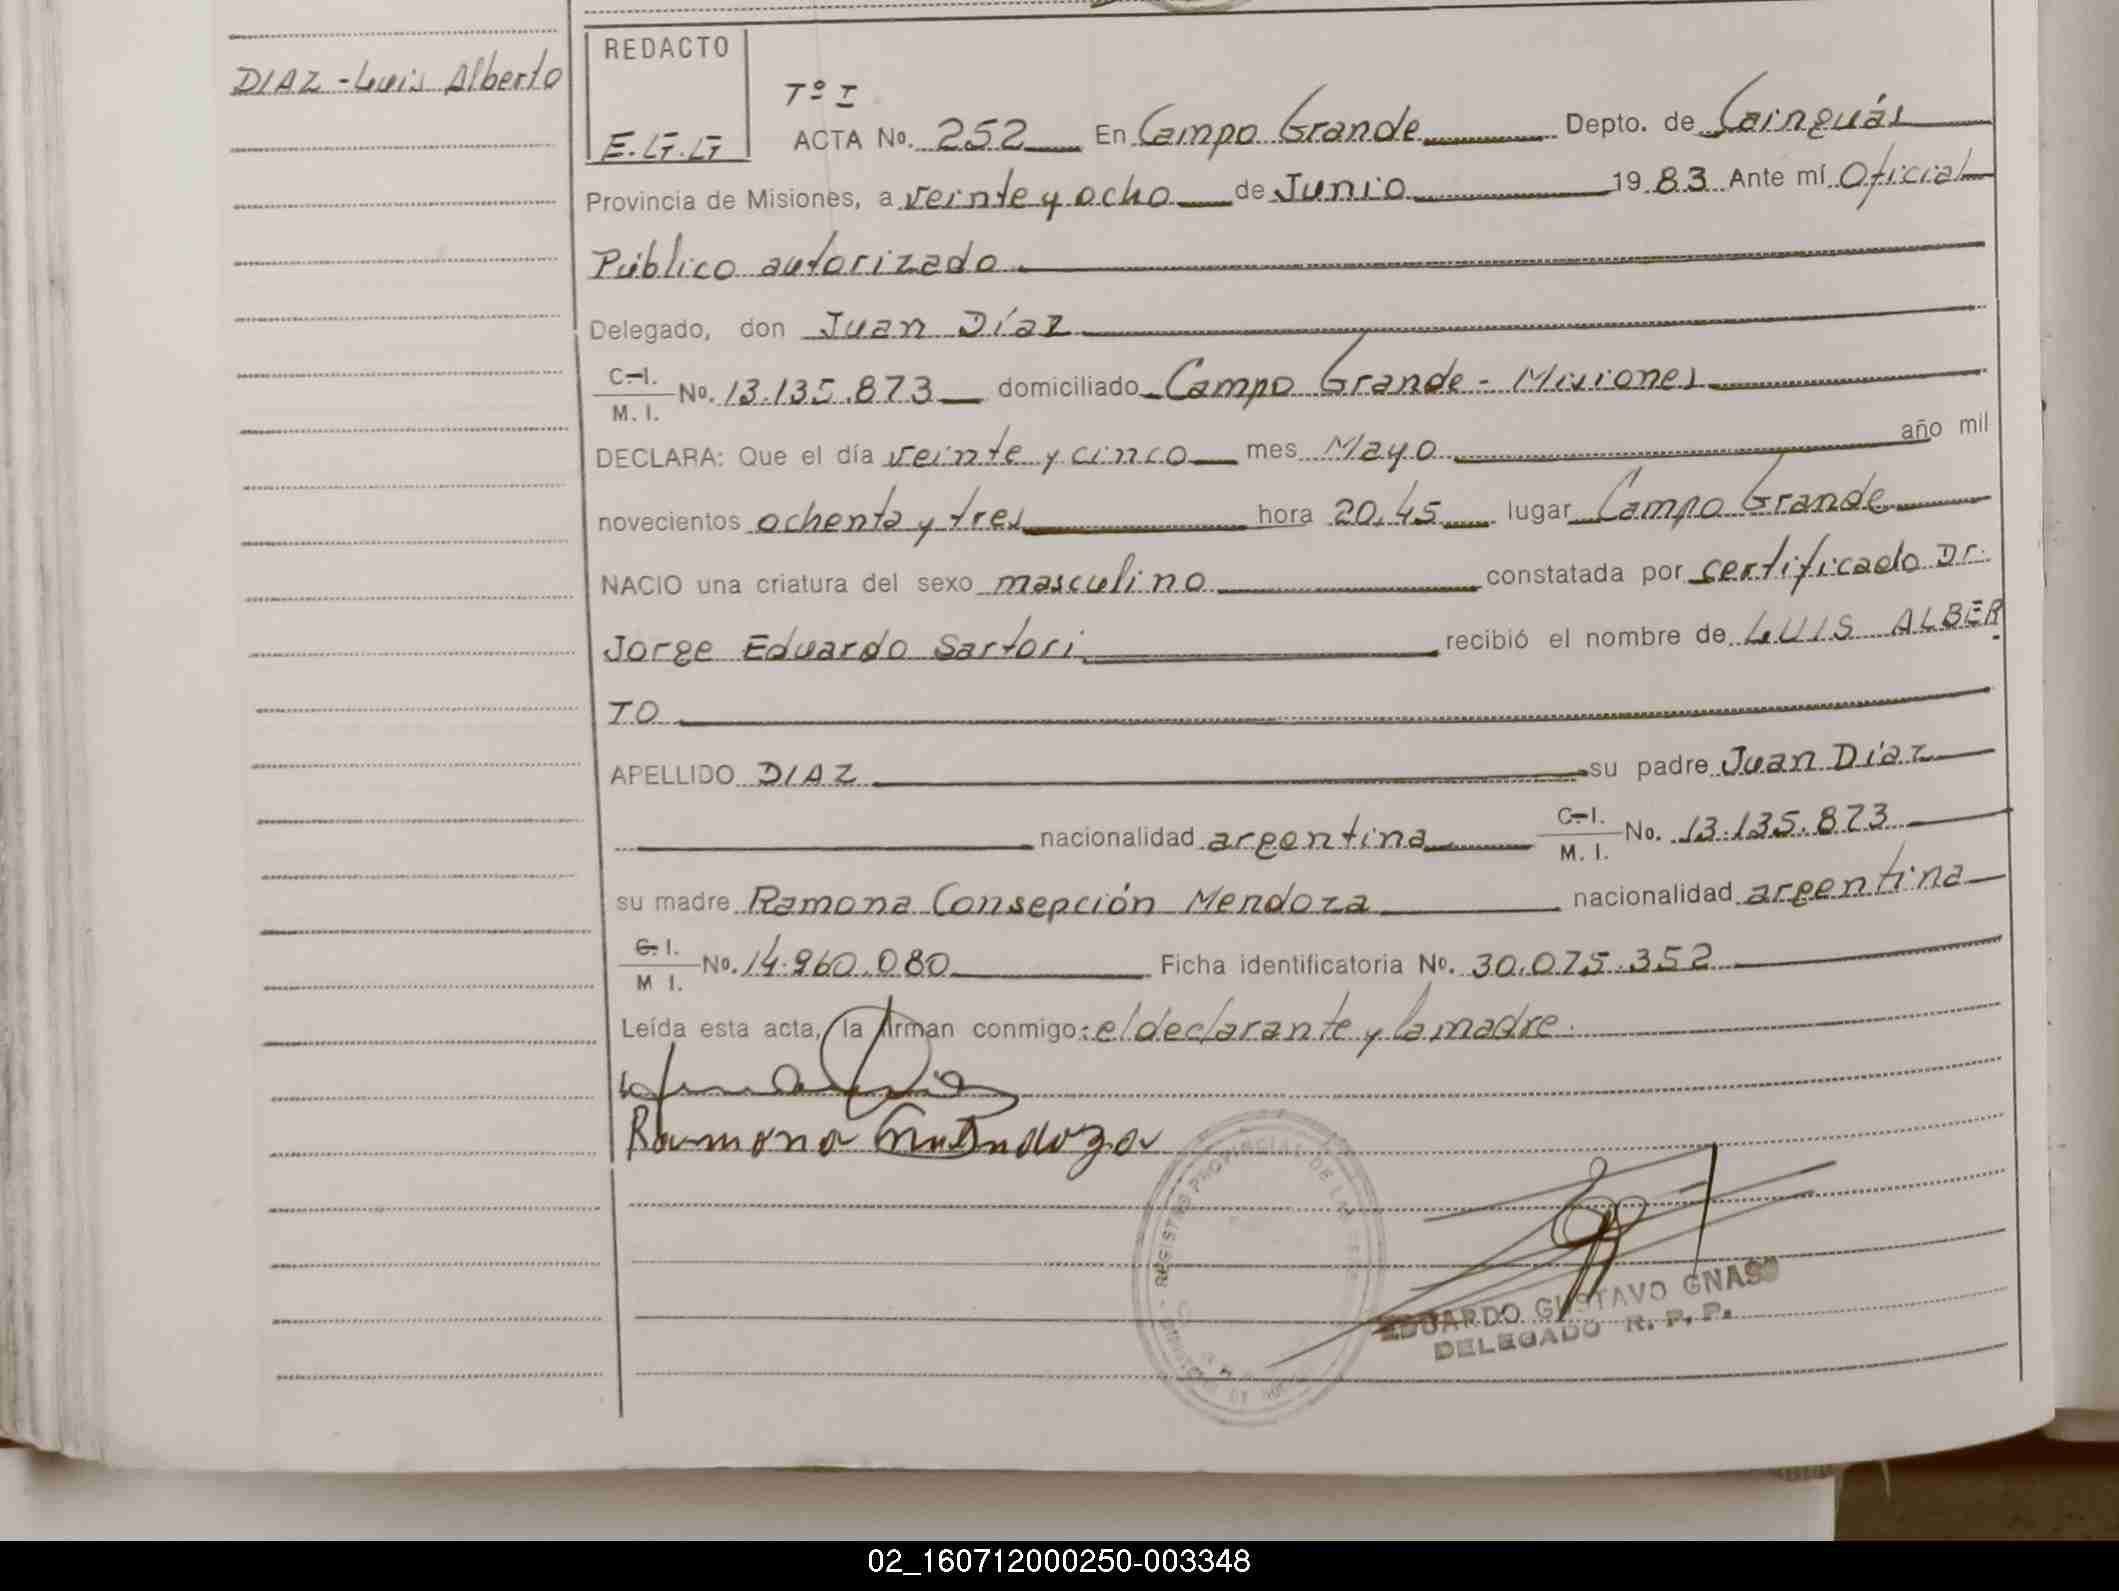 DIAZ - Luis Alberto
REDACTO
E.G.G
Tº I
ACTA Nº. 252 En Campo Grande Depto. de Cainguás
Provincia de Misiones, a veinte y ocho de Junio 19 83 Ante mí Oficial
Público autorizado
Delegado, don Juan Díaz
C.I.
M. I. Nº. 13.135.873 domiciliado Campo Grande - Misiones
DECLARA: Que el día veinte y cinco mes Mayo año mil
novecientos ochenta y tres hora 20,45 lugar Campo Grande
NACIO una criatura del sexo masculino constatada por certificado Dr.
Jorge Eduardo Sartori recibió el nombre de LUIS ALBER
TO
APELLIDO DIAZ su padre Juan Díaz
nacionalidad argentina C.I. M. I. No. 13.135.873
su madre Ramona Consepción Mendoza nacionalidad argentina
C.I.
M I. Nº. 14.960.080 Ficha identificatoria Nº. 30.075.352
Leída esta acta, la firman conmigo: el declarante y la madre.
Ramona Mendoza
REGISTRO PROVINCIAL DE LAS
EDUARDO GUSTAVO GNASS
DELEGADO R. P. P.
02_160712000250-003348